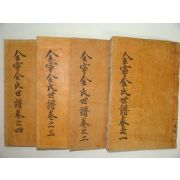 金寧金氏世譜卷之一
金寧金氏世譜卷之二
金寧金氏世譜卷之三
金寧金氏世譜卷之四